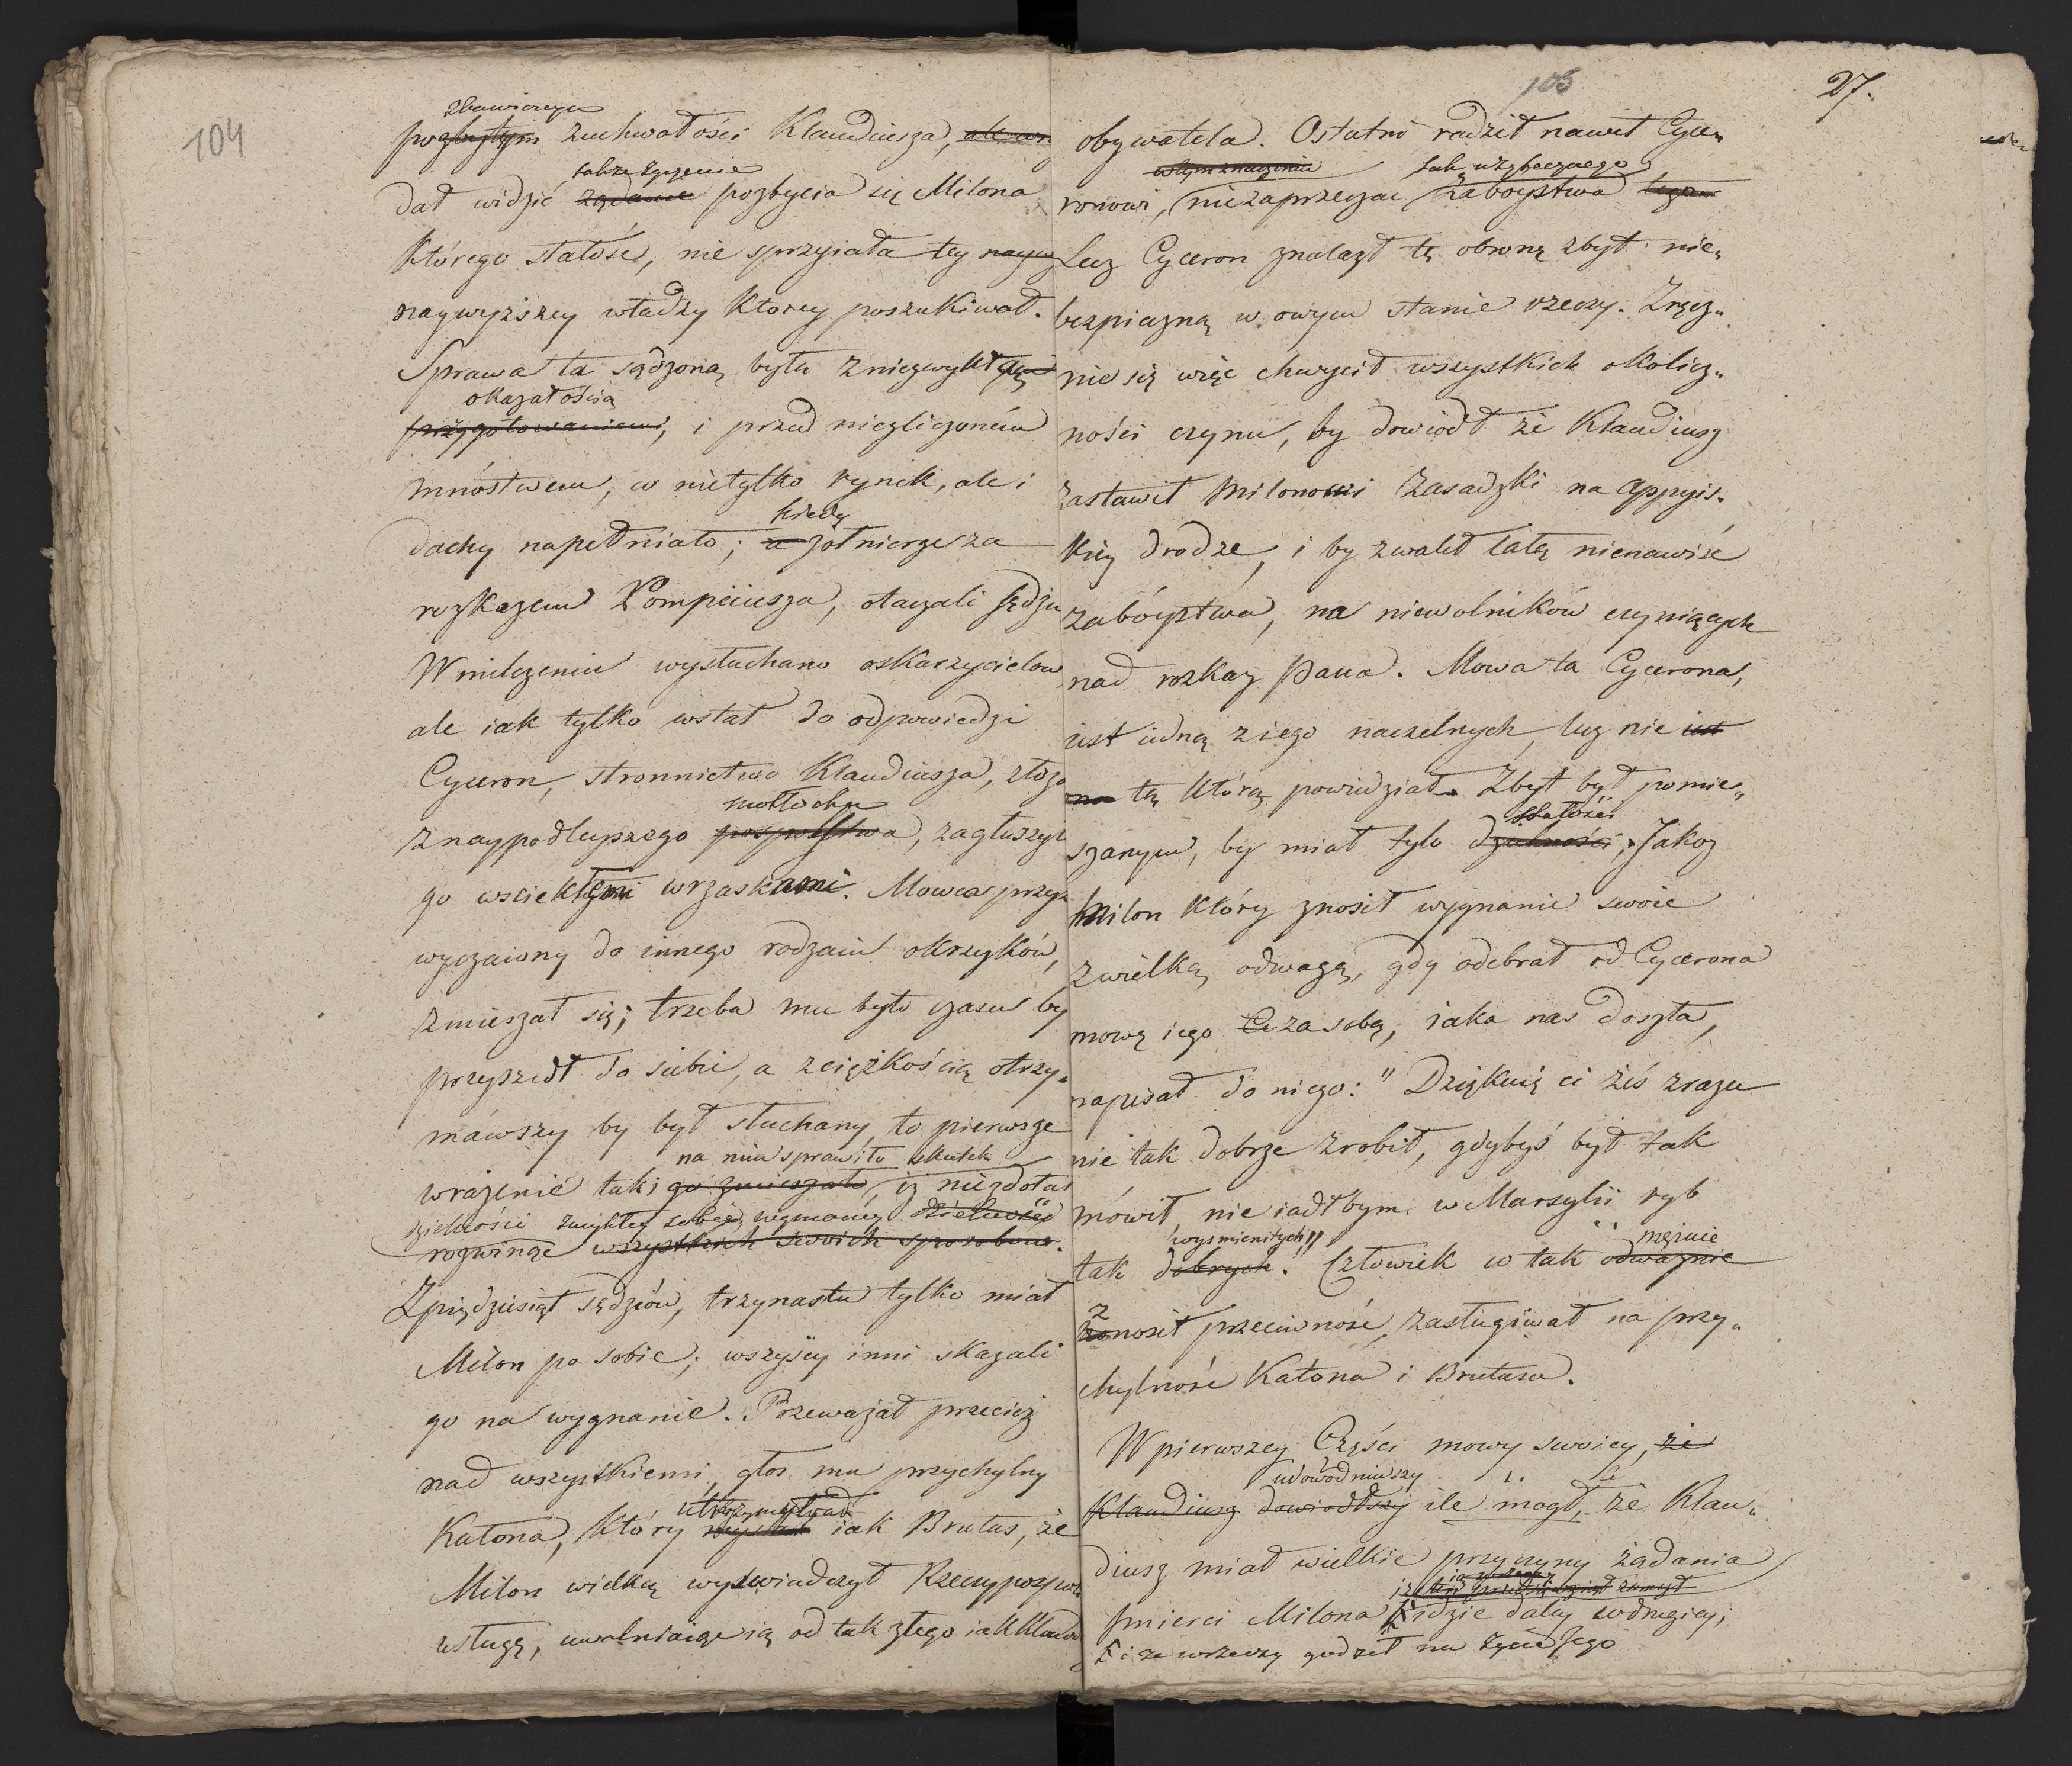 104
zbawiczym
pozbytym zuchwałości Klaudiusza,
także życzenie
dał widzić żądanie pozbycia się Milona
którego stałość, nie sprzyiała tey
naywyższey władzy ktorey poszukiwał.
Sprawa ta sądzoną była z niezwykłą
okazałością
przygotowaniem, i przed niezliczoném
mnóstwem, co nietylko rynek, ale i
kiedy
dachy napełniało; a żołnierze za
rozkazem Pompeiusza, otaczali sędziu
W milczeniu wysłuchano oskarzycielow
ale iak tylko wstał do odpowiedzi
Cyceron, stronnictwo Klaudiusza, złożo
motłochu
z naypodleyszego pospolstwa, zagłuszył
go wsciekłemi wrzaskami. Mowca przyz
wyczaiony do innego rodzaiu okrzyków,
zmieszał się; trzeba mu było czasu by
przyszedł do siebie, a zciężkością otrzy„
mawszy by był słuchany, to pierwsze
na nim sprawiło skutek
wrażenie taki go zmieszało, iż niezdołał
dzielności zwykłey sobie wymowy dzielność
rozwinąć wszystkich swoich sposobow.
Zpiędziesiąt sędziów, trzynastu tylko miał
Milon po sobie; wszyscy inni skazali
go na wygnanie. Przeważał przecież
nad wszystkiemi, głos mu przychylny
utrzymywał
Katona, który iak Brutus, że
Milon wielką wyswiadczył Rzeczypospoli
usługę, uwalniaiąc ią od tak złego iak Klaud
105
27.
obywatela. Ostatni radził nawet Cyce„
w tym znaczeniu tak użytecznego
ronowi, niezaprzeczać zaboystwa tego
Lecz Cyceron znalazł tę obronę zbyt nie„
bezpieczną w owym stanie rzeczy. Zręcz„
nie się więc chwycił wszystkich okolicz„
ności czynu, by dowiodł że Klaudiusz
zastawił Milonowi zasadzki na Appyis„
kiey drodze, i by zwalił całą nienawiść
zaboystwa, na niewolników czyniących
nad rozkaz Pana. Mowa ta Cycerona,
iest iedną z iego naczelnych, lecz nie iest
ona tą którą powiedział. Zbyt był pomie„
stałości
szanym, by miał tyle dzielności; Jakoż
Milon który znosił wygnanie swoie
z wielką odwagą, gdy odebrał od Cycerona
mowę iego za sobą, iaka nas doszła,
napisał do niego: "Dziękuię ci żeś zrazu
nie tak dobrze zrobił, gdybyś był tak
mówił, nie iadłbym w Marsylii ryb
wysmienitych" mężnie
tak dobrych. Człowiek co tak odważnie
z
nosił przeciwność, zasługiwał na przy„
chylność Katona i Brutusa.
W pierwszey Części mowy swoiey, że
udowodniwszy
Klaudiusz dowiodłszy ile mogł, że Klau„
diusz miał wielkie przyczyny żądania
śmierci Milona idzie daley w drugiey;
i że wrzeczy godził na życie Jego